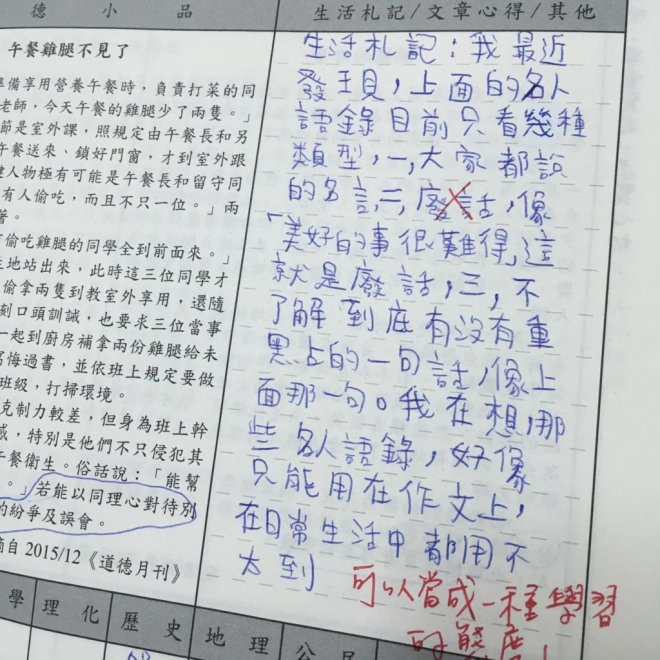 德小品
午餐雞腿不見了
準備享用營養午餐時，負責打菜的同
老師，今天午餐的雞腿少了兩隻。」
節是室外課，照規定由午餐長和另
午餐送來、鎖好門窗，才到室外跟
人物極有可能是午餐長和留守同
有人偷吃，而且不只一位。」兩
著。
偷吃雞腿的同學全到前面來。」
地站出來，此時這三位同學才
偷拿兩隻到教室外享用，還隨
刻口頭訓誡，也要求三位當事
一起到廚房補拿兩份雞腿給未
寫悔過書，並依班上規定要做
班級，打掃環境。
克制力較差，但身為班上幹
感，特別是他們不只侵犯其
午餐衛生。俗話說：「能幫
。」若能以同理心對待別
的紛爭及誤會。
摘自 2015/12《道德月刊》
生活札記/文章心得/其他
生活札記：我最近
發現，上面的名人
語錄目前只看幾種
類型，一，大家都說
的名言，二，廢話，像
「美好的事很難得，這
就是廢話，三，不
了解到底有沒有重
點的一句話，像上
面那一句。我在想，那
些名人語錄，好像
只能用在作文上，
在日常生活中都用不
太到
可以當成一種學習
的態度！
學 理化 歷史 地理 公民